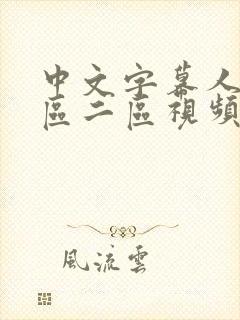 中文字幕人
區二區視頻
風流雲